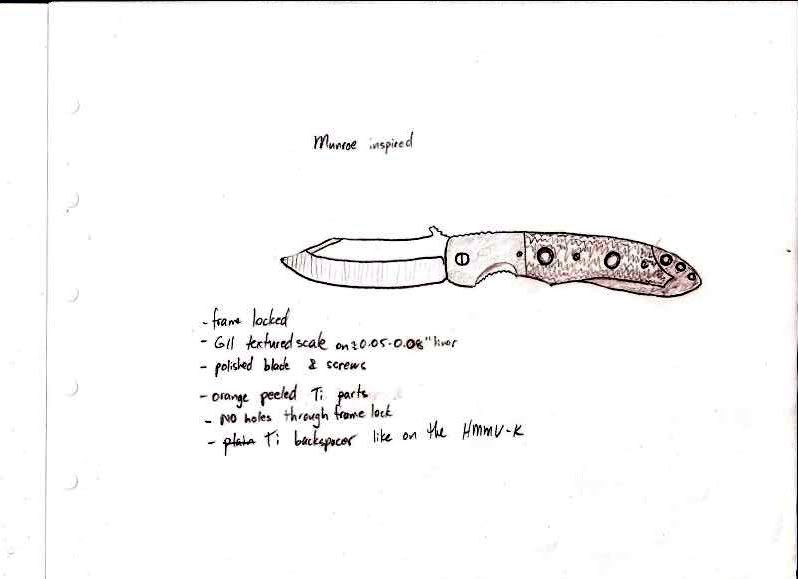 Munroe inspired
- frame locked
- G11 textured scale on ≈0.05-0.08" liner
- polished blade & screws
- orange peeled Ti parts
- NO holes through frame lock
- plain Ti backspacer like on the HMMV-K